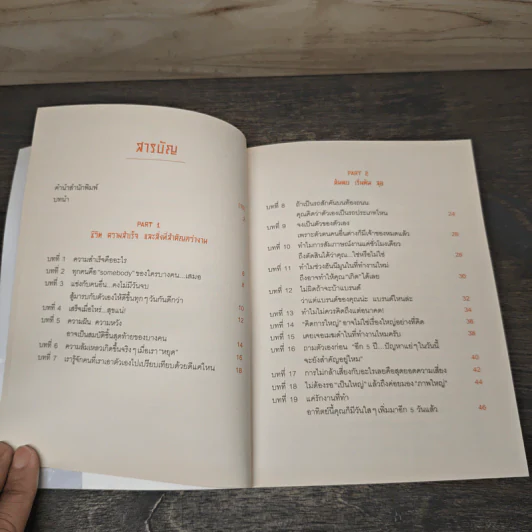 สารบัญ
คำนำสำนักพิมพ์
บทนำ
PART 1
ชีวิต ความสำเร็จ และสิ่งที่สำคัญกว่างาน
บทที่ 1 ความสำเร็จคืออะไร
บทที่ 2 ทุกคนคือ "somebody" ของใครบางคน...เสมอ 6
บทที่ 3 แข่งกับคนอื่น...คงไม่มีวันจบ
สู้มารบกับตัวเองให้ดีขึ้นทุกๆ วันกันดีกว่า 8
บทที่ 4 เสร็จเมื่อไหร่...สุขแน่!
บทที่ 5 ความฝัน ความหวัง
อาจเป็นสมบัติชิ้นสุดท้ายของบางคน 14
บทที่ 6 ความล้มเหลวเกิดขึ้นจริงๆ เมื่อเรา "หยุด" 16
บทที่ 7 เรารู้จักคนที่เราเอาตัวเองไปเปรียบเทียบด้วยดีแค่ไหน 18
PART 2
บทที่ 8 ถ้าเป็นรถสักคันบนท้องถนน
คุณคิดว่าตัวเองเป็นรถประเภทไหน 24
บทที่ 9 จงเป็นตัวของตัวเอง
เพราะตัวตนคนอื่นต่างก็มีเจ้าของหมดแล้ว 26
บทที่ 10 ทำไมการสัมภาษณ์งานแค่ชั่วโมงเดียว
ถึงตัดสินได้ว่าคุณ...ใช่หรือไม่ใช่ 28
บทที่ 11 ทำไมช่วงฮันนีมูนในที่ทำงานใหม่
ถึงอาจทำให้คุณ "เกิด" ได้เลย 30
บทที่ 12 ไม่ผิดถ้าจะบ้าแบรนด์
ว่าแต่แบรนด์ของคุณน่ะ แบรนด์ไหนล่ะ 32
บทที่ 13 ทำไมไม่ควรคิดถึงแต่อนาคต! 34
บทที่ 14 "คิดการใหญ่" อาจไม่ใช่เรื่องใหญ่อย่างที่คิด 36
บทที่ 15 เคยเจอเมฆดำในที่ทำงานไหมครับ 38
บทที่ 16 ถามตัวเองก่อน "อีก 5 ปี...ปัญหาแย่ๆ ในวันนี้
จะยังสำคัญอยู่ไหม" 40
บทที่ 17 การไม่กล้าเสี่ยงกับอะไรเลยคือสุดยอดความเสี่ยง 42
บทที่ 18 ไม่ต้องรอ "เป็นใหญ่" แล้วถึงค่อยมอง "ภาพใหญ่" 44
บทที่ 19 แค่รักงานที่ทำ
อาทิตย์นี้คุณก็มีวันใสๆ เพิ่มมาอีก 5 วันแล้ว 46